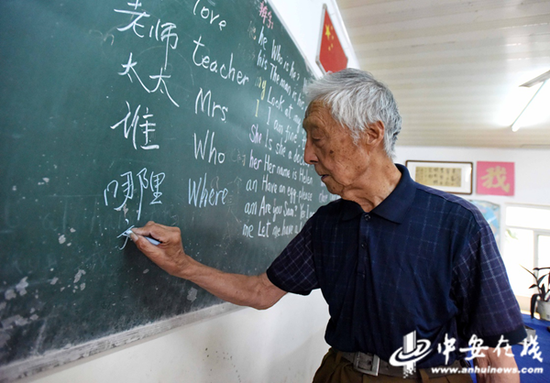 love
老师 teacher
太太 Mrs
谁 Who
哪里 Where
he Who is he ?
his The man is
Look at
I I am five
She Is she a
her Her name is Helen
an Have an egg please
am Are you Sam? Yes I
me Let me have a
我
中安在线
www.anhuinews.com